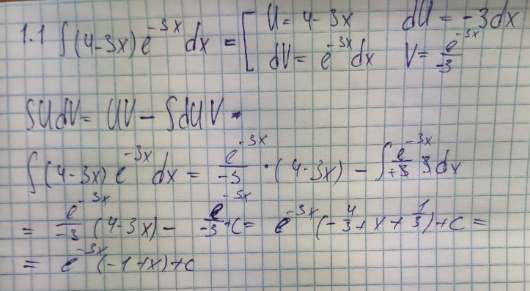 1.1 ∫(4-3x)e^{-3x}dx = [ U = 4-3x dU = -3dx
dV = e^{-3x}dx V = e^{-3x}/-3
∫UdV = UV - ∫dUV
∫(4-3x)e^{-3x}dx = e^{-3x}/-3 · (4-3x) - ∫e^{-3x}/+3 3dx
= e^{-3x}/-3 (4-3x) - e^{-3x}/-3 + C = e^{-3x}(-4/3 + x + 1/3) + C =
= e^{-3x}(-1+x)+C